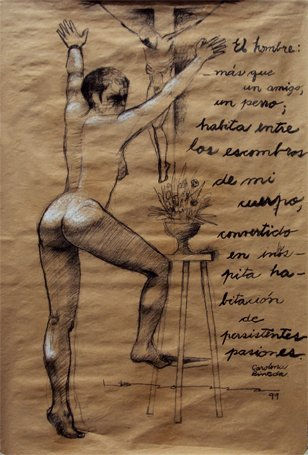 El hombre:
más que
un amigo,
un perro;
habita entre
los escombros
de mi
cuerpo,
convertido
en inós-
pita ha-
bitación
de
persistentes
pasiones.
Carolina
Pineda
99